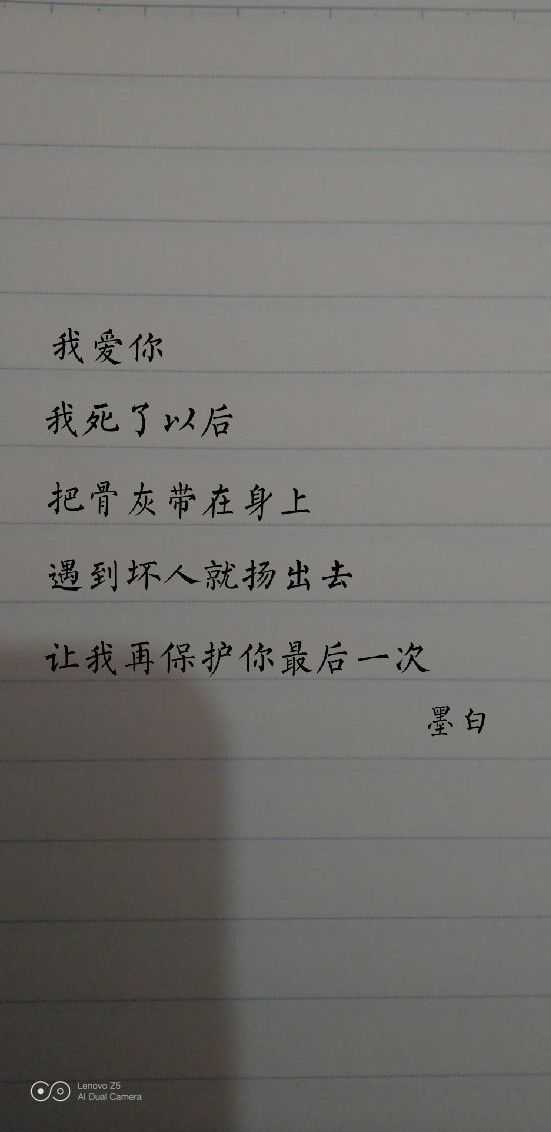 我爱你
我死了以后
把骨灰带在身上
遇到坏人就扬出去
让我再保护你最后一次
墨白
Lenovo Z5
AI Dual Camera